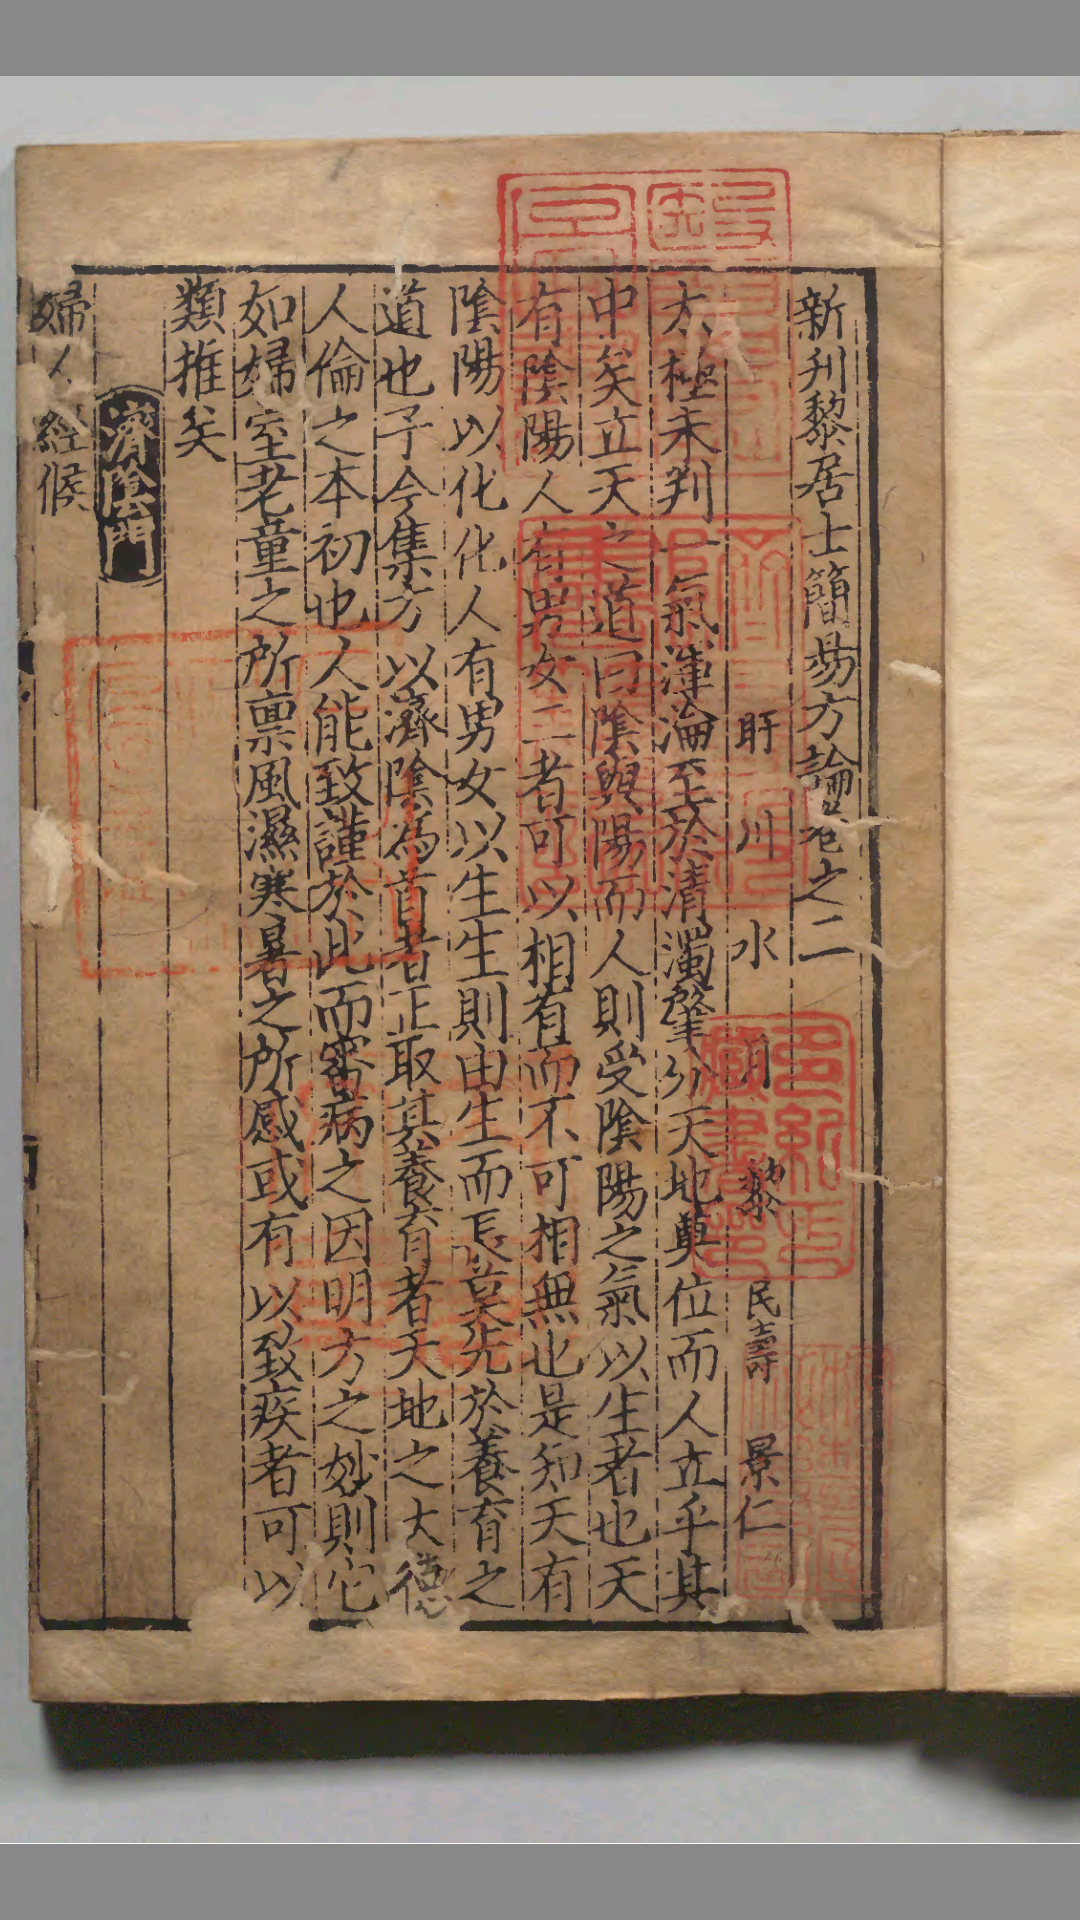 新刋黎居士簡易方論卷之二
盱川水月黎民壽景仁
太極未判一氣渾淪至於清濁肇分天地奠位而人立乎其
中矣立天之道曰隂與陽而人則受隂陽之氣以生者也天
有隂陽人有男女二者可以相有而不可相無也是知天有
隂陽以化化人有男女以生生則由生而長莫先於養育之
道也予今集方以濟隂為首者正取其養育者天地之大德
人倫之本初也人能致謹於此而審病之因明方之妙則它
如婦室老童之所禀風濕寒暑之所感或有以致疾者可以
類推矣
濟隂門
婦人經候